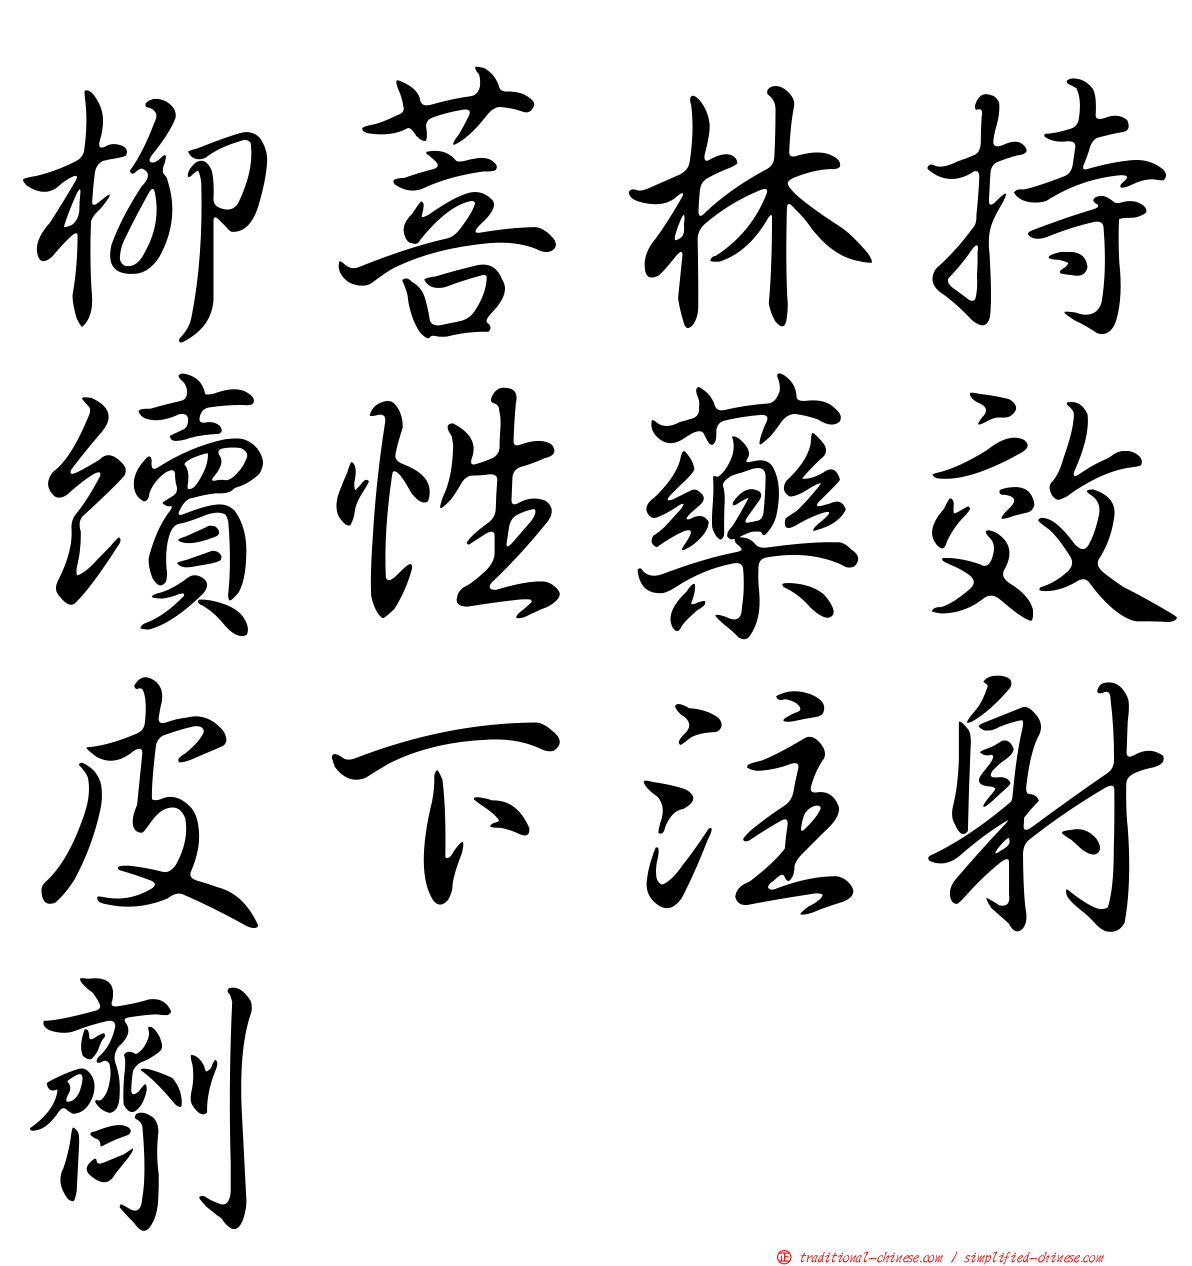 柳菩林持
續性藥效
皮下注射
劑
正 traditional-chinese.com / simplified-chinese.com